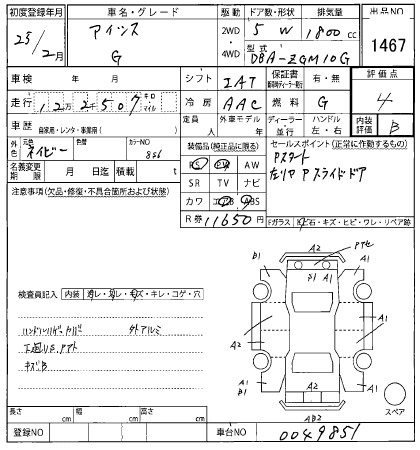 初度登録年月
25/2月
車名・グレード
アイシス
G
駆動
2WD
4WD
ドア数・形状
5 W
排気量
1800cc
型式
DBA-ZGM10G
出品NO
1467
車検 年 月
シフト IAT
保証書 有・無
評価点
4
走行 12万2千507キロ
マイル
冷房 AAC
燃料 G
車歴 自家用・レンタ・事業用( )
定員 人
外車モデル 年
ディーラー・並行
ハンドル 左・右
内装評価 B
外色 元色 ネイビー
色替
カラーNO 8S6
装備品(純正品に限る)
PS PW AW
SR TV ナビ
カワ エアB ABS
セールスポイント(正常に作動するもの)
Pスタート
左リヤ Pスライドドア
名義変更期限 月 日迄
積載 t
R券 11650円
Fガラス 石・キズ・ヒビ・ワレ・リペア跡
注意事項(欠品・修復・不具合箇所および状態)
検査員記入 内装 コレ・ヨレ・モズ・キレ・コゲ・穴
外アルミ
下廻りS.Pアト
キズB
A2
S1 A1
B1 A1
A2 A2
B1 A1
A1
A2
AB2
スペア
長さ cm
幅 cm
高さ cm
登録NO
車台NO 0049851